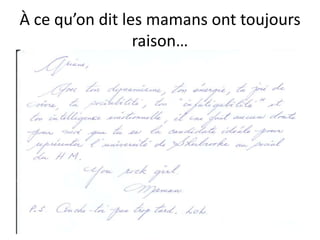 À ce qu’on dit les mamans ont toujours
raison…
Avec ton dynamisme, ton énergie, ta joie de
vivre, ta sociabilité, ton "infatigabilité" et
ton intelligence émotionnelle, il ne fait aucun doute
pour moi que tu es la candidate idéale pour
représenter l'université de Sherbrooke au
du H.M.
You rock girl
Maman
P.S. Couche-toi pas trop tard. Lol